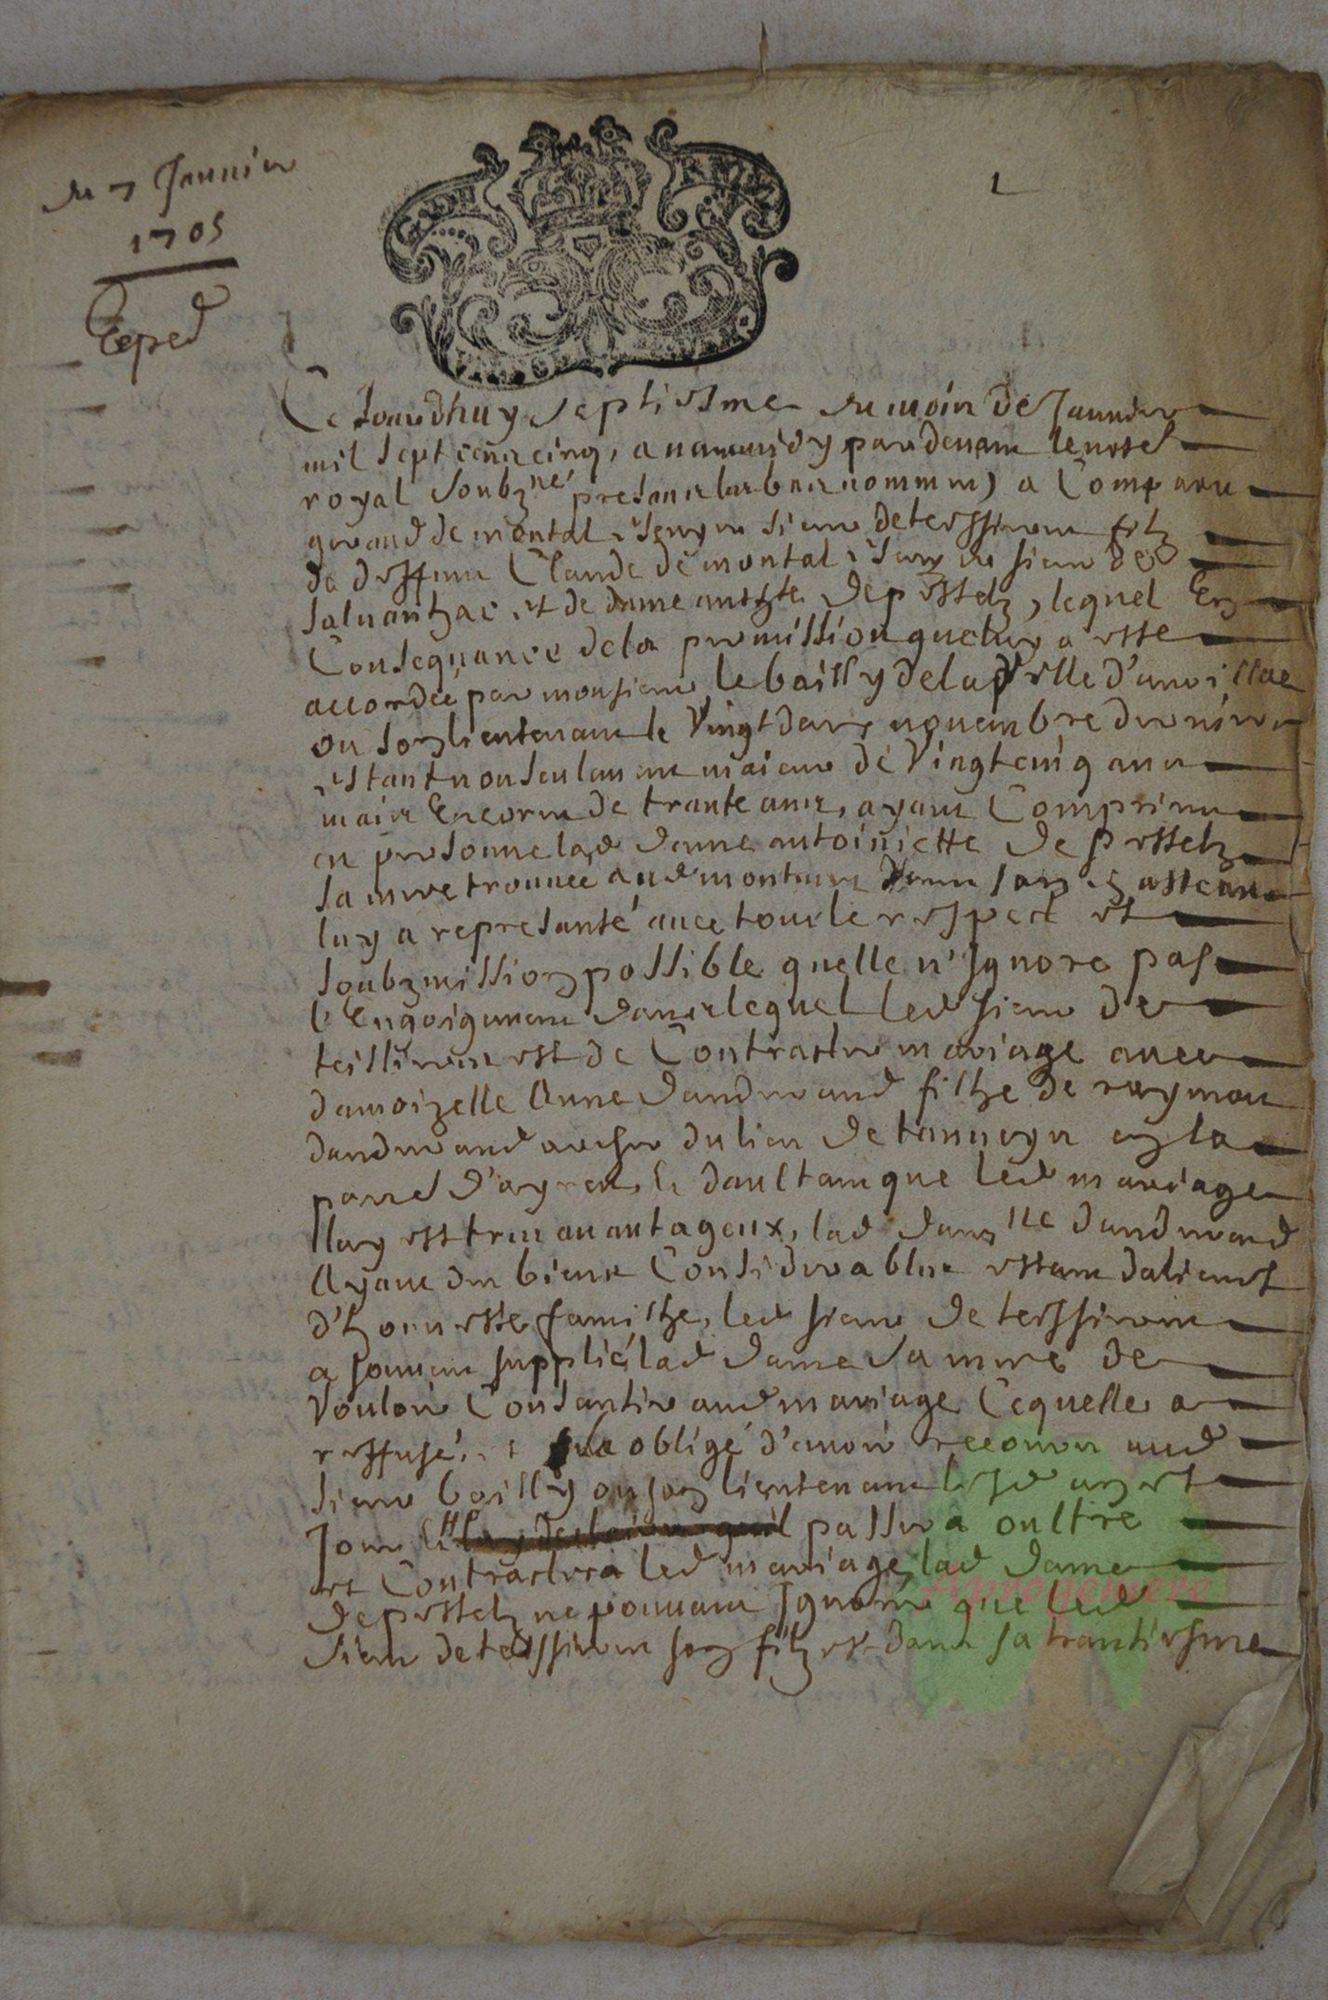 du 7 Januier
1705
Exped
1
Ce Jourdhuy septiesme du mois de Januier
mil sept cens cinq, auant midy pardeuant le notere
royal soubzne presans les bas nommes) a Comparu
guraud de montal Escuyer sieur de teissieres filz
de deffunt Claude de montal Escuyer sieur de
saluanhac et de dame anthte de prestelz, lequel En
Consequance de la permission queluy a esté
accordée par monsieur le bailly de la ville d'aurillac
ou son lieutenant le Vingt deux nouembre dernier
estant non seulement maieur de Vingtcinq ans
mais Encores de trante ans, ayant
en personne lad dame antoiniette de prestelz
sa mere trouuée aud dans son
luy a represanté auec tout le respect et
soubzmission possible quelle n'Ignore pas
l'Engaigement dans lequel led sieur de
teissieres est de Contracter mariage auec
damoizelle Anne dandurand filhe de raymon
dandurand du lieu de en la
parroisse d'ayrens, & daultant que led mariage
lluy est tres auantageux, lad damlle dandurand
Ayant des biens Considerables estant dalieurs
d'honneste familhe, led sieur de teissieres
a souuent supplié lad dame sa mere de
Vouloir Consantir aud mariage Cequelle a
reffusé, obligé d'auoir recours aud
sieur bailly ou son lieutenant
Jour passera oultre
et Contractera led mariage, lad dame
de prestelz ne pouuant Ignorer que led
sieur de teissieres son filz est dans sa trantiesme
Aprogemere